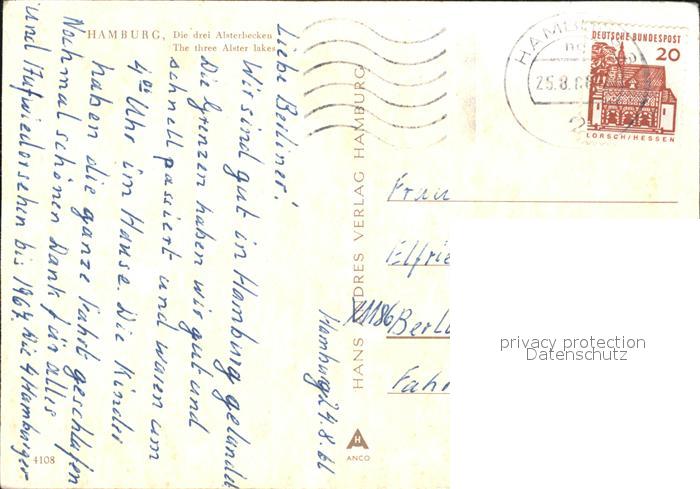 HAMBURG, Die drei Alsterbecken
The three Alster lakes
Hamburg 24.8.66
Liebe Berliner!
Wir sind gut in Hamburg gelandet
Die Grenzen haben wir gut und
schnell passiert und waren um
4°° Uhr im Hause. Die Kinder
haben die ganze Fahrt geschlafen
Nochmal schönen Dank für alles
und Aufwiedersehen bis 1967 Die 4 Hamburger
4108
HANS ANDRES VERLAG HAMBURG
A
H
ANCO
HAMBURG
25.8.66
2
DEUTSCHE BUNDESPOST
20
LORSCH/HESSEN
Frau
Elfrie
Berl
Fah
privacy protection
Datenschutz